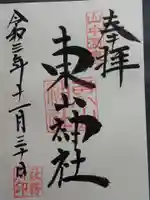 奉拝
東山神社
令和三年十一月三十日